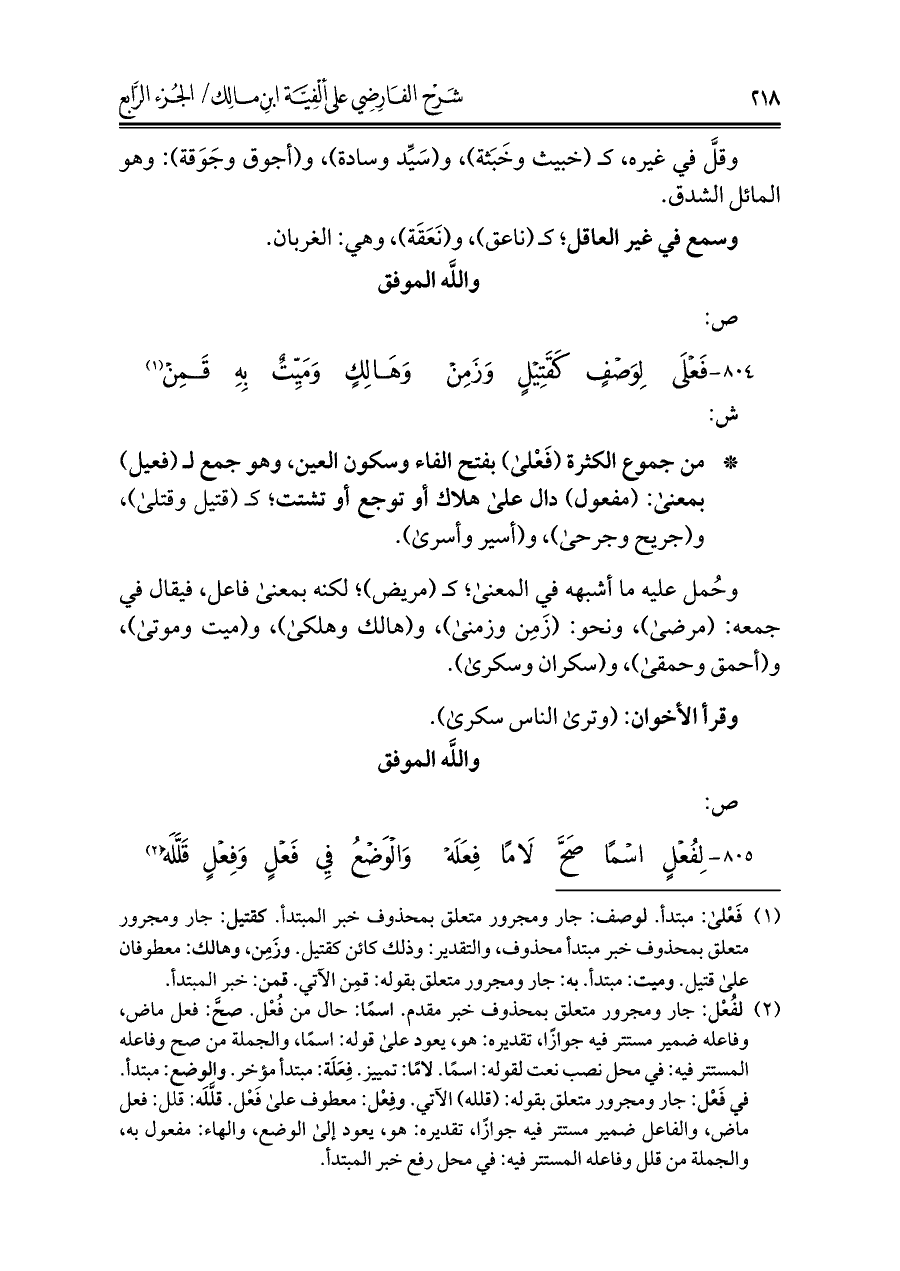 ٢١٨ شَرْح الفَارِضِي عَلى أَلْفِيَّة ابنِ مَالِك/ الجُزء الرَّابع
وقلَّ في غيره، كـ (خبيث وخَبَثة)، و(سَيِّد وسادة)، و(أجوق وجَوَقة): وهو
المائل الشدق.
وسمع في غير العاقل؛ كـ (ناعق)، و(نَعَقَة)، وهي: الغربان.
واللَّه الموفق
ص:
٨٠٤-فَعْلَى لِوَصْفٍ كَقَتِيْلٍ وَزَمِنْ وَهَالِكٍ وَمَيِّتٌ بِهِ قَمِنْ(١)
ش:
* من جموع الكثرة (فَعْلىٰ) بفتح الفاء وسكون العين، وهو جمع لـ (فعيل)
بمعنىٰ: (مفعول) دال علىٰ هلاك أو توجع أو تشتت؛ كـ (قتيل وقتلىٰ)،
و(جريح وجرحىٰ)، و(أسير وأسرىٰ).
وحُمل عليه ما أشبهه في المعنىٰ؛ كـ (مريض)؛ لكنه بمعنىٰ فاعل، فيقال في
جمعه: (مرضىٰ)، ونحو: (زَمِن وزمنىٰ)، و(هالك وهلكىٰ)، و(ميت وموتىٰ)،
و(أحمق وحمقىٰ)، و(سكران وسكرىٰ).
وقرأ الأخوان: (وترىٰ الناس سكرىٰ).
واللَّه الموفق
ص:
٨٠٥-لِفُعْلٍ اسْمًا صَحَّ لَامًا فِعَلَهْ وَالْوَضْعُ فِي فَعْلٍ وَفِعْلٍ قَلَّلَه(٢)
(١) فَعْلىٰ: مبتدأ. لوصف: جار ومجرور متعلق بمحذوف خبر المبتدأ. كقتيل: جار ومجرور
متعلق بمحذوف خبر مبتدأ محذوف، والتقدير: وذلك كائن كقتيل. وزَمِن، وهالك: معطوفان
علىٰ قتيل. وميت: مبتدأ. به: جار ومجرور متعلق بقوله: قمِن الآتي. قمن: خبر المبتدأ.
(٢) لفُعْل: جار ومجرور متعلق بمحذوف خبر مقدم. اسمًا: حال من فُعْل. صحَّ: فعل ماض،
وفاعله ضمير مستتر فيه جوازًا، تقديره: هو، يعود علىٰ قوله: اسمًا، والجملة من صح وفاعله
المستتر فيه: في محل نصب نعت لقوله: اسمًا. لامًا: تمييز. فِعَلَة: مبتدأ مؤخر. والوضع: مبتدأ.
في فَعْل: جار ومجرور متعلق بقوله: (قلله) الآتي. وفِعْل: معطوف علىٰ فَعْل. قلَّلَه: قلل: فعل
ماض، والفاعل ضمير مستتر فيه جوازًا، تقديره: هو، يعود إلىٰ الوضع، والهاء: مفعول به،
والجملة من قلل وفاعله المستتر فيه: في محل رفع خبر المبتدأ.